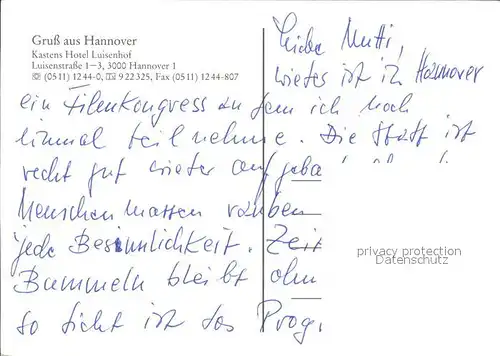 Gruß aus Hannover
Kastens Hotel Luisenhof
Luisenstraße 1–3, 3000 Hannover 1
☏ (0511) 1244-0, 922325, Fax (0511) 1244-807
Liebe Mutti,
wieder ist in Hannover
ein Filenkongress an dem ich noch
einmal teilnehme. Die Stadt ist
recht gut wieder aufgeba
Menschenmassen rauben
jede Besinnlichkeit. Zeit
Bummeln bleibt ohn
so dicht ist das Prog
privacy protection
Datenschutz